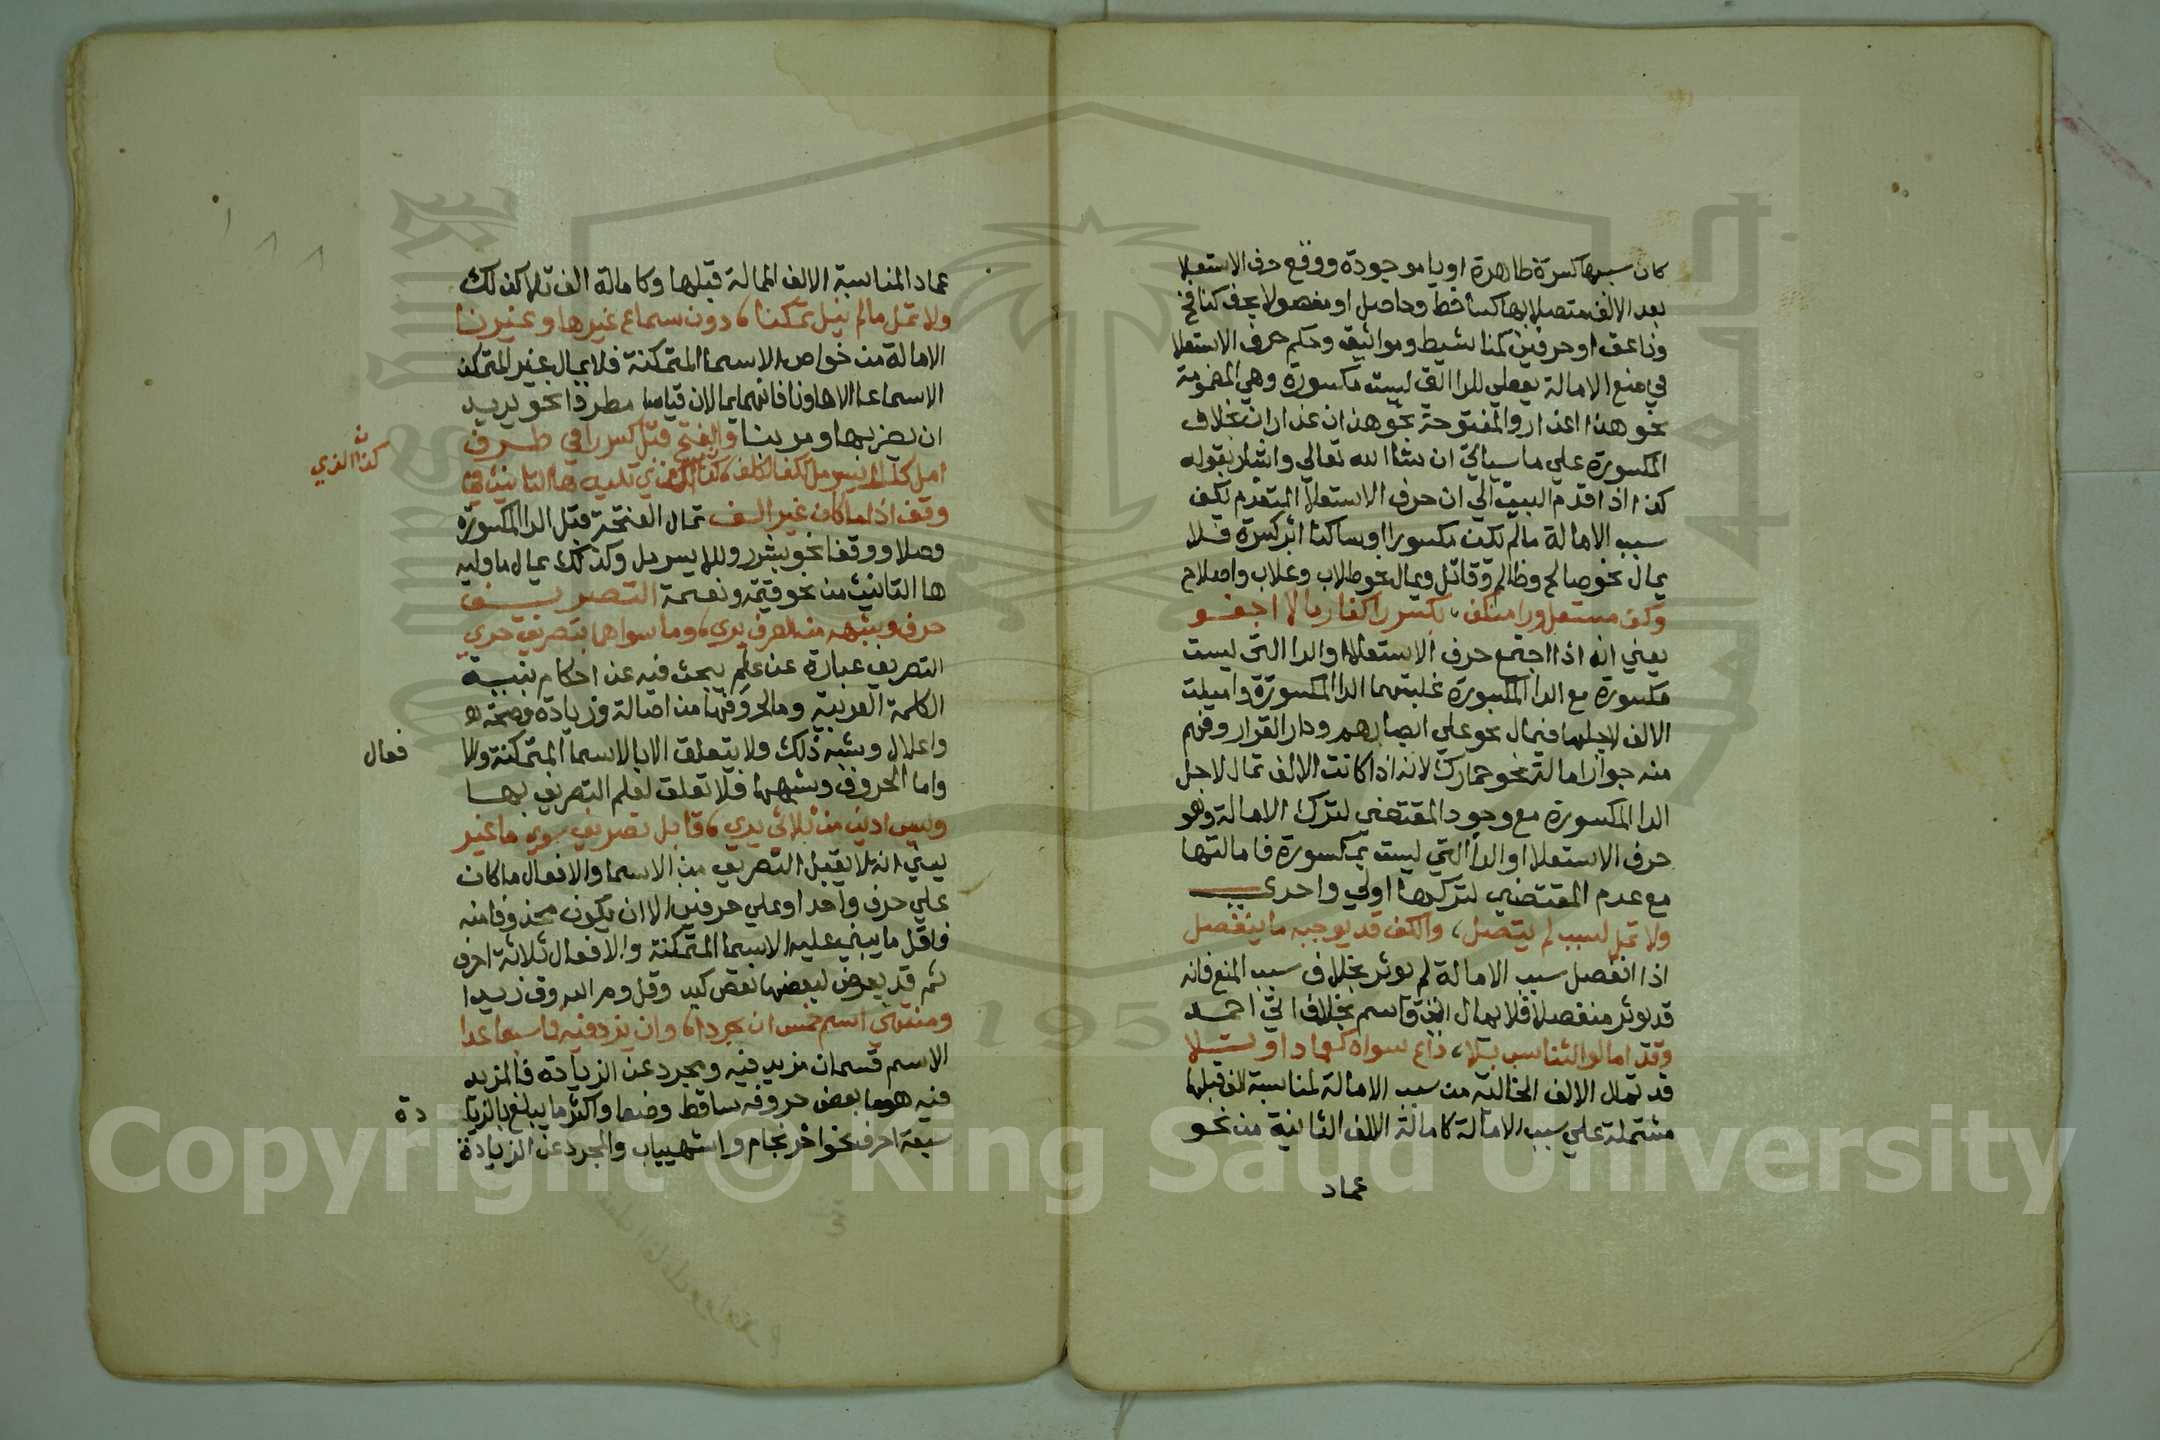 كان سببها كسرة ظاهرة او يا موجودة ووقع حرف الاستعلا
بعد الالف متصلا بها كساخط وحاصل او مفصولا بحرف كنافخ
وناعق او حرفين كمناشيط ومواثيق وحكم حرف الاستعلا
في منع الامالة يعطي للرا التي ليست مكسورة وهي المضمومة
نحو هذا عذار والمفتوحة نحو هذان عذاران بخلاف
المكسورة علي ما سياتي ان شا الله تعالي واشار بقوله
كذا اذا قدم البيت الي ان حرف الاستعلا المتقدم يكف
سبب الامالة ما لم يكن مكسورا او ساكنا اثر كسرة فلا
يمال نحو صالح وظالم وقاتل ويمال نحو طلاب وغلاب واصلاح
وكف مستعل ورا ينكف، بكسر را كغارما لا اجفو
يعني انه اذا اجتمع حرف الاستعلا او الرا التي ليست
مكسورة مع الرا المكسورة غلبتهما الرا المكسورة واميلت
الالف لاجلها فيمال نحو علي ابصارهم ودار القرار وفهم
منه جواز امالة نحو حمارك لانه اذا كانت الالف تمال لاجل
الرا المكسورة مع وجود المقتضي لترك الامالة وهو
حرف الاستعلا او الرا التي ليست بمكسورة فامالتها
مع عدم المقتضي لتركها اولي واحري
ولا تمل لسبب لم يتصل، والكف قد يوجبه ما ينفصل
اذا انفصل سبب الامالة لم يوثر بخلاف سبب المنع فانه
قد يوثر منفصلا فلا يمال اتي قاسم بخلاف اتي احمد
وقد امالوا لتناسب بلا، داع سواه كعمادا وتلا
قد تمال الالف الخالية من سبب الامالة لمناسبة الف قبلها
مشتملة علي سبب الامالة كامالة الالف الثانية من نحو
عماد
عماد المناسبة الالف الممالة قبلها وكامالة الف تلا كذلك
ولا تمل ما لم ينل تمكنا، دون سماع غيرها وغير نا
الامالة من خواص الاسما المتمكنة فلا يمال غير المتمكن
الاسماعا الا ها ونا فانهما يمالان قياسا مطردا نحو يريد
ان يضربها ومر بنا والفتح قبل كسر را في طرف
امل كللايسر مل تكف الكلف، كذا الذي تليه ها التانيث في
كذا الذي
وقف اذا ما كان غير الف تمال الفتحة قبل الرا المكسورة
وصلا ووقفا نحو بشرر وللايسر مل وكذلك يمال ما وليه
ها التانيث من نحو قيمة ونعمة التصريف
حرف وشبهه من الصرف بري، وما سواهما بتصريف حري
التصريف عبارة عن علم يبحث فيه عن احكام بنية
الكلمة العربية وما لحروفها من اصالة وزيادة وصحة
واعلال وشبه ذلك ولا يتعلق الا بالاسما المتمكنة والا
فعال
واما الحروف وشبهها فلا تعلق لعلم التصريف بها
وليس ادني من ثلاثي يري، قابل تصريف سوي ما غير
يعني انه لا يقبل التصريف من الاسما والافعال ما كان
علي حرف واحد او علي حرفين الا ان يكون محذوفا منه
فاقل ما يبني عليه الاسما المتمكنة والافعال ثلاثة احرف
ثم قد يعرض لبعضها نقص كيد وقل وم الله وق زيدا
ومنتهي اسم خمس ان تجردا، وان يزد فيه فما سبعا عدا
الاسم قسمان مزيد فيه ومجرد عن الزيادة فالمزيد
فيه هو ما بعض حروفه ساقط وضعا واكثر ما يبلغ بالزيا
دة
سبعة احرف نحو احرنجام واشهيباب والمجرد عن الزيادة
Copyright © King Saud University